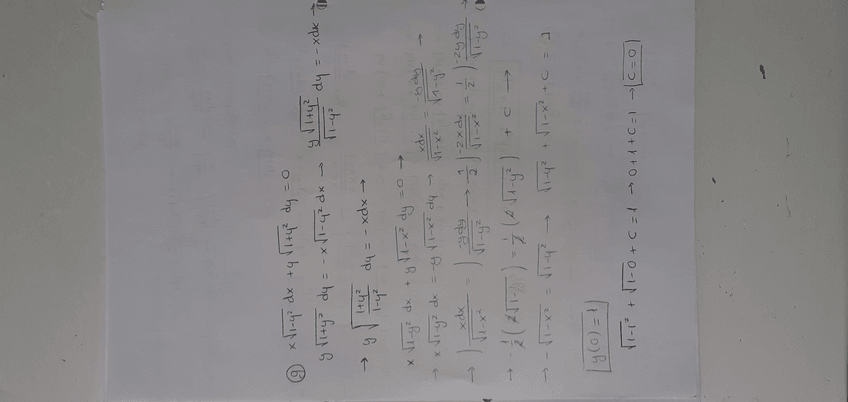 (g) x√(1-y²) dx + y√(1+y²) dy = 0
y√(1+y²) dy = -x√(1-y²) dx → y√(1+y²)/√(1-y²) dy = -xdx →
→ y√((1+y²)/(1-y²)) dy = -xdx →
x√(1-y²) dx + y√(1-x²) dy = 0 →
→ x√(1-y²) dx = -y√(1-x²) dy → xdx/√(1-x²) = -ydy/√(1-y²) →
→ ∫ xdx/√(1-x²) = ∫ -ydy/√(1-y²) → -1/2 ∫ -2xdx/√(1-x²) = 1/2 ∫ -2ydy/√(1-y²) →
→ -1/2 (2√(1- ) = 1/2 (2√(1-y²)) + C →
→ -√(1-x²) = √(1-y²) → √(1-y²) + √(1-x²) + C = 1
y(0) = 1
√(1-1²) + √(1-0) + C = 1 → 0+1+C=1 → C=0